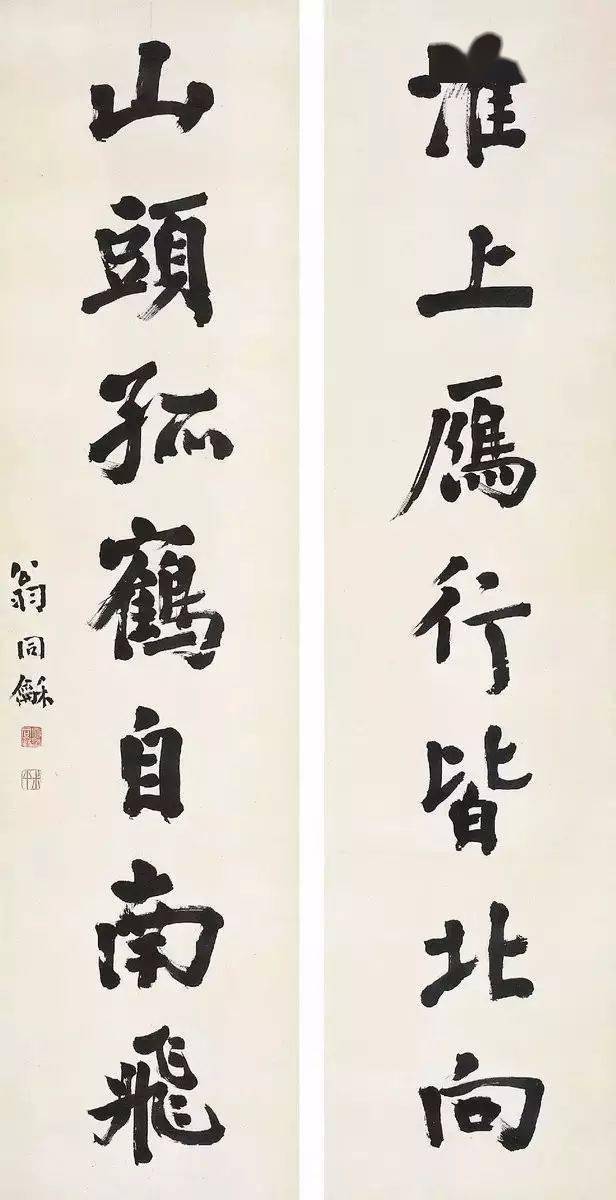 上鴈行皆北向
山頭孤鶴自南飛
翁同龢